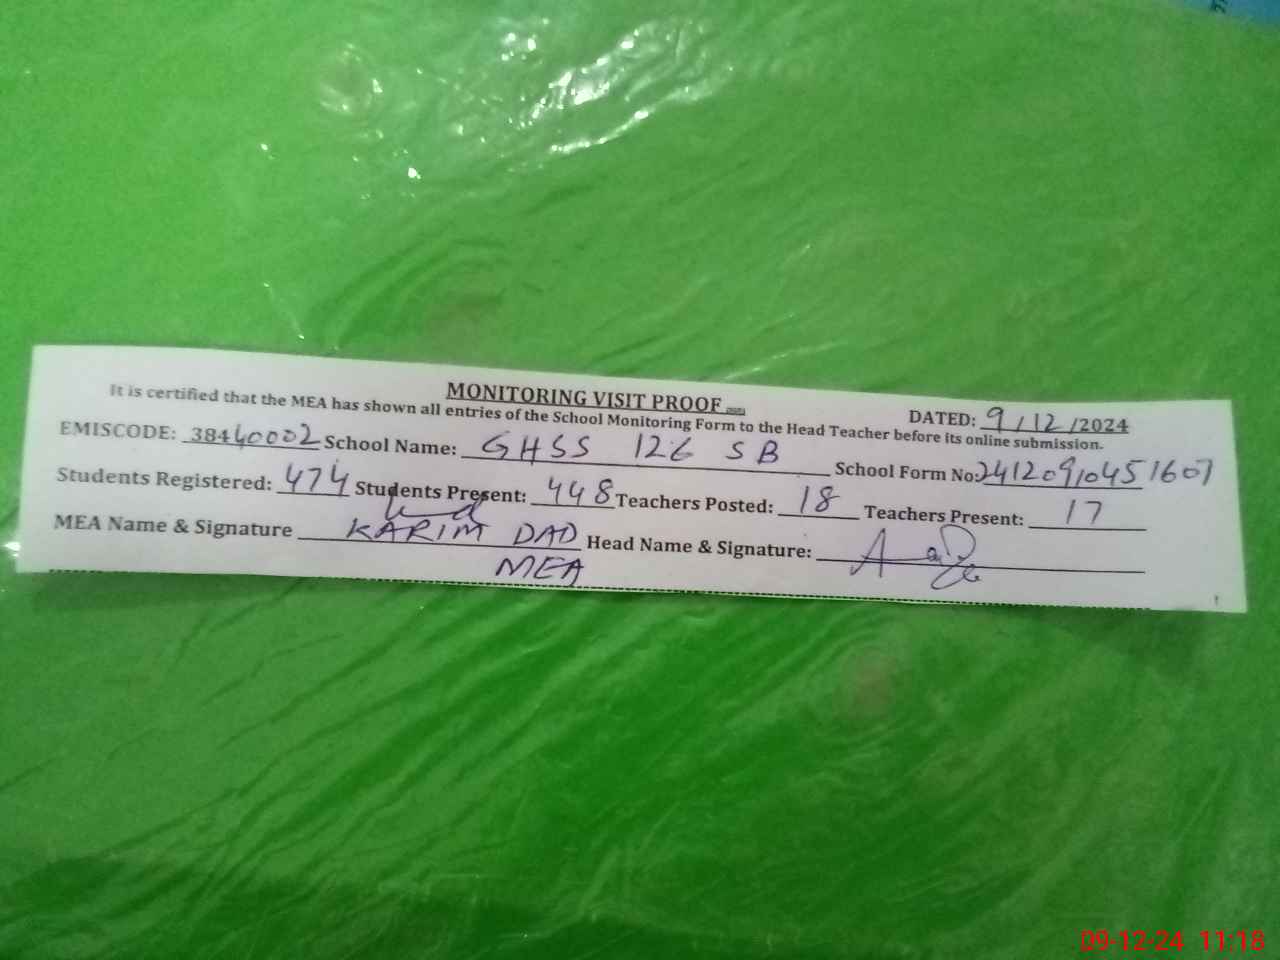 MONITORING VISIT PROOF
DATED: 9/12/2024
It is certified that the MEA has shown all entries of the School Monitoring Form to the Head Teacher before its online submission.
EMISCODE: 38440002 School Name: GHSS 126 SB School Form No: 24120910451607
Students Registered: 474 Students Present: 448 Teachers Posted: 18 Teachers Present: 17
MEA Name & Signature KARIM DAD Head Name & Signature:
MEA
09-12-24 11:18